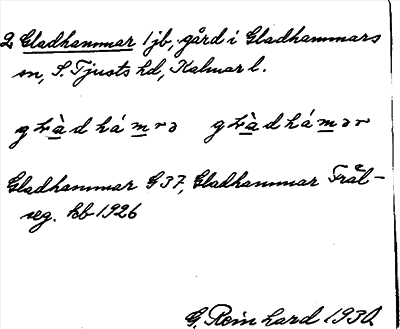 2 Gladhammar 1 jb, gård i Gladhammars
sn, S. Tjusts hd, Kalmar l.
Gladhammar G37, Gladhammar Frål-
seg. kb 1926
G. Reinhard 1930.